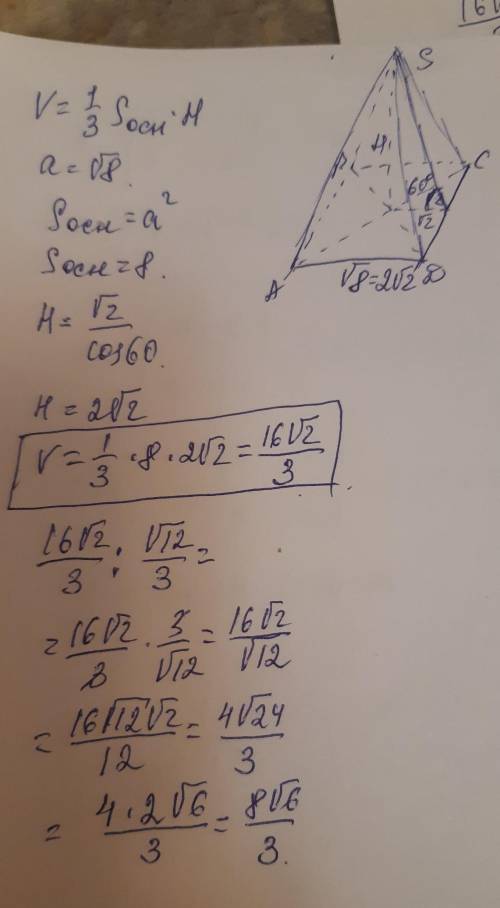 V = 1/3 Sосн · H
a = √8.
Sосн = a²
Sосн = 8.
H = √2/cos60.
H = 2√2
V = 1/3 · 8 · 2√2 = 16√2/3.
16√2/3 : √12/3 =
= 16√2/3 · 3/√12 = 16√2/√12
= 16√12√2/12 = 4√24/3
= 4·2√6/3 = 8√6/3.
S
H
C
60°
√2
√2
A
√8=2√2 D